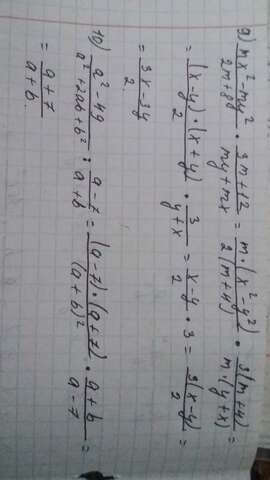 9) (mx² - my²)/(2m + 8y) · (3m + 12)/(my + mx) = (m · (x² - y²))/(2(m + 4)) · (3(m + 4))/(m · (y + x)) =
= ((x - y) · (x + y))/2 · 3/(y + x) = (x - y)/2 · 3 = (3(x - y))/2 =
= (3x - 3y)/2.
10) (a² - 49)/(a² + 2ab + b²) : (a - 7)/(a + b) = ((a - 7) · (a + 7))/(a + b)² · (a + b)/(a - 7) =
= (a + 7)/(a + b).